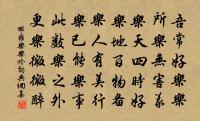 吾常好樂樂
所樂無害義
樂天四時好
樂地百物備
樂人有美行
樂己能樂事
此數樂之外
更樂微微醉
邵雍樂樂吟